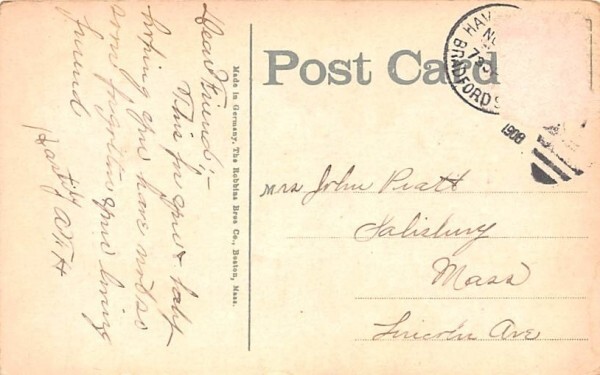 Dear Friend;-
This for you & baby
hoping you have not so
soon forgotten your loving
friend
Hastily A.F.H
Made in Germany, The Robbins Bros Co., Boston, Mass.
Post Card
HAV
NO
7
BRADFORD S
1908
Mrs John Pratt
Salisbury
Mass
Lincoln Ave